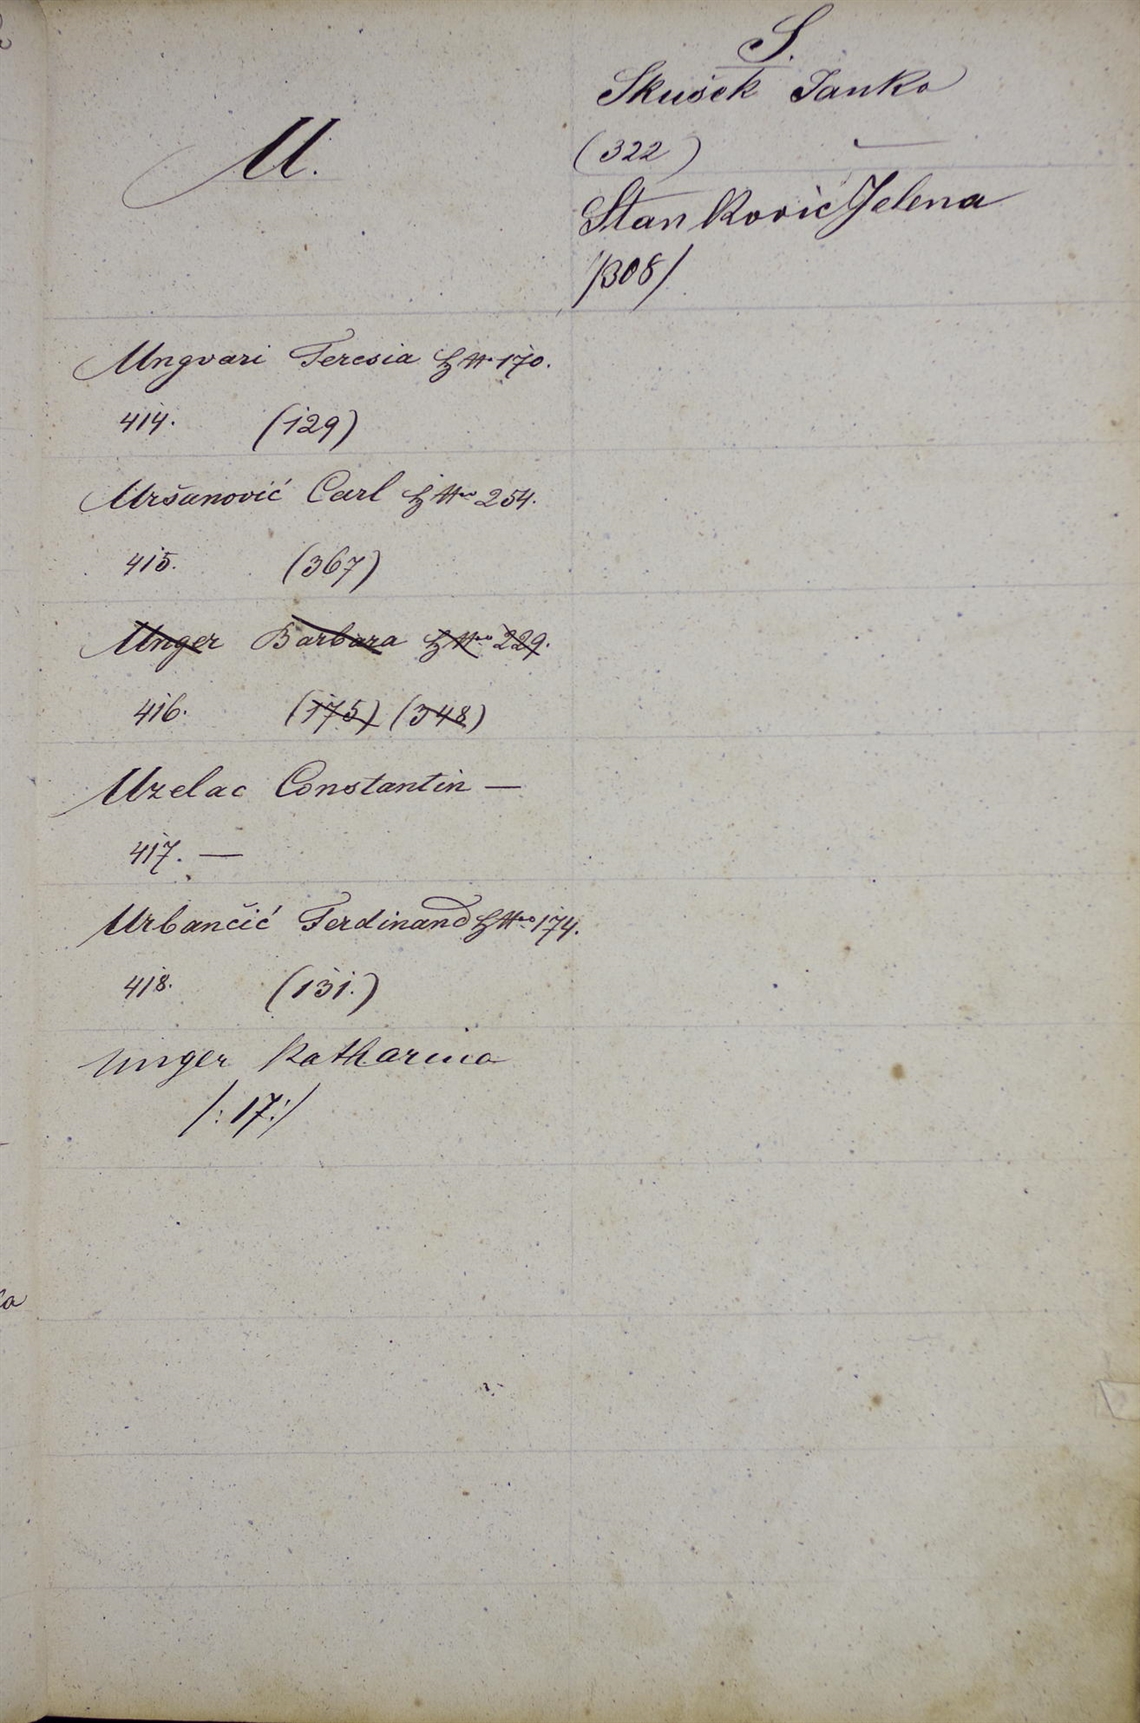 U.
Ungvari Teresia H No 170.
414. (129)
Uršanović Carl H No 254.
415. (367)
Unger Barbara H No 229.
416. (175) (348)
Uzelac Constantin —
417. —
Urbančić Ferdinand H No 174.
418. (131.)
Unger Katharina
/: 17:/
S.
Skušek Janko
(322) —
Stanković Jelena
/308/